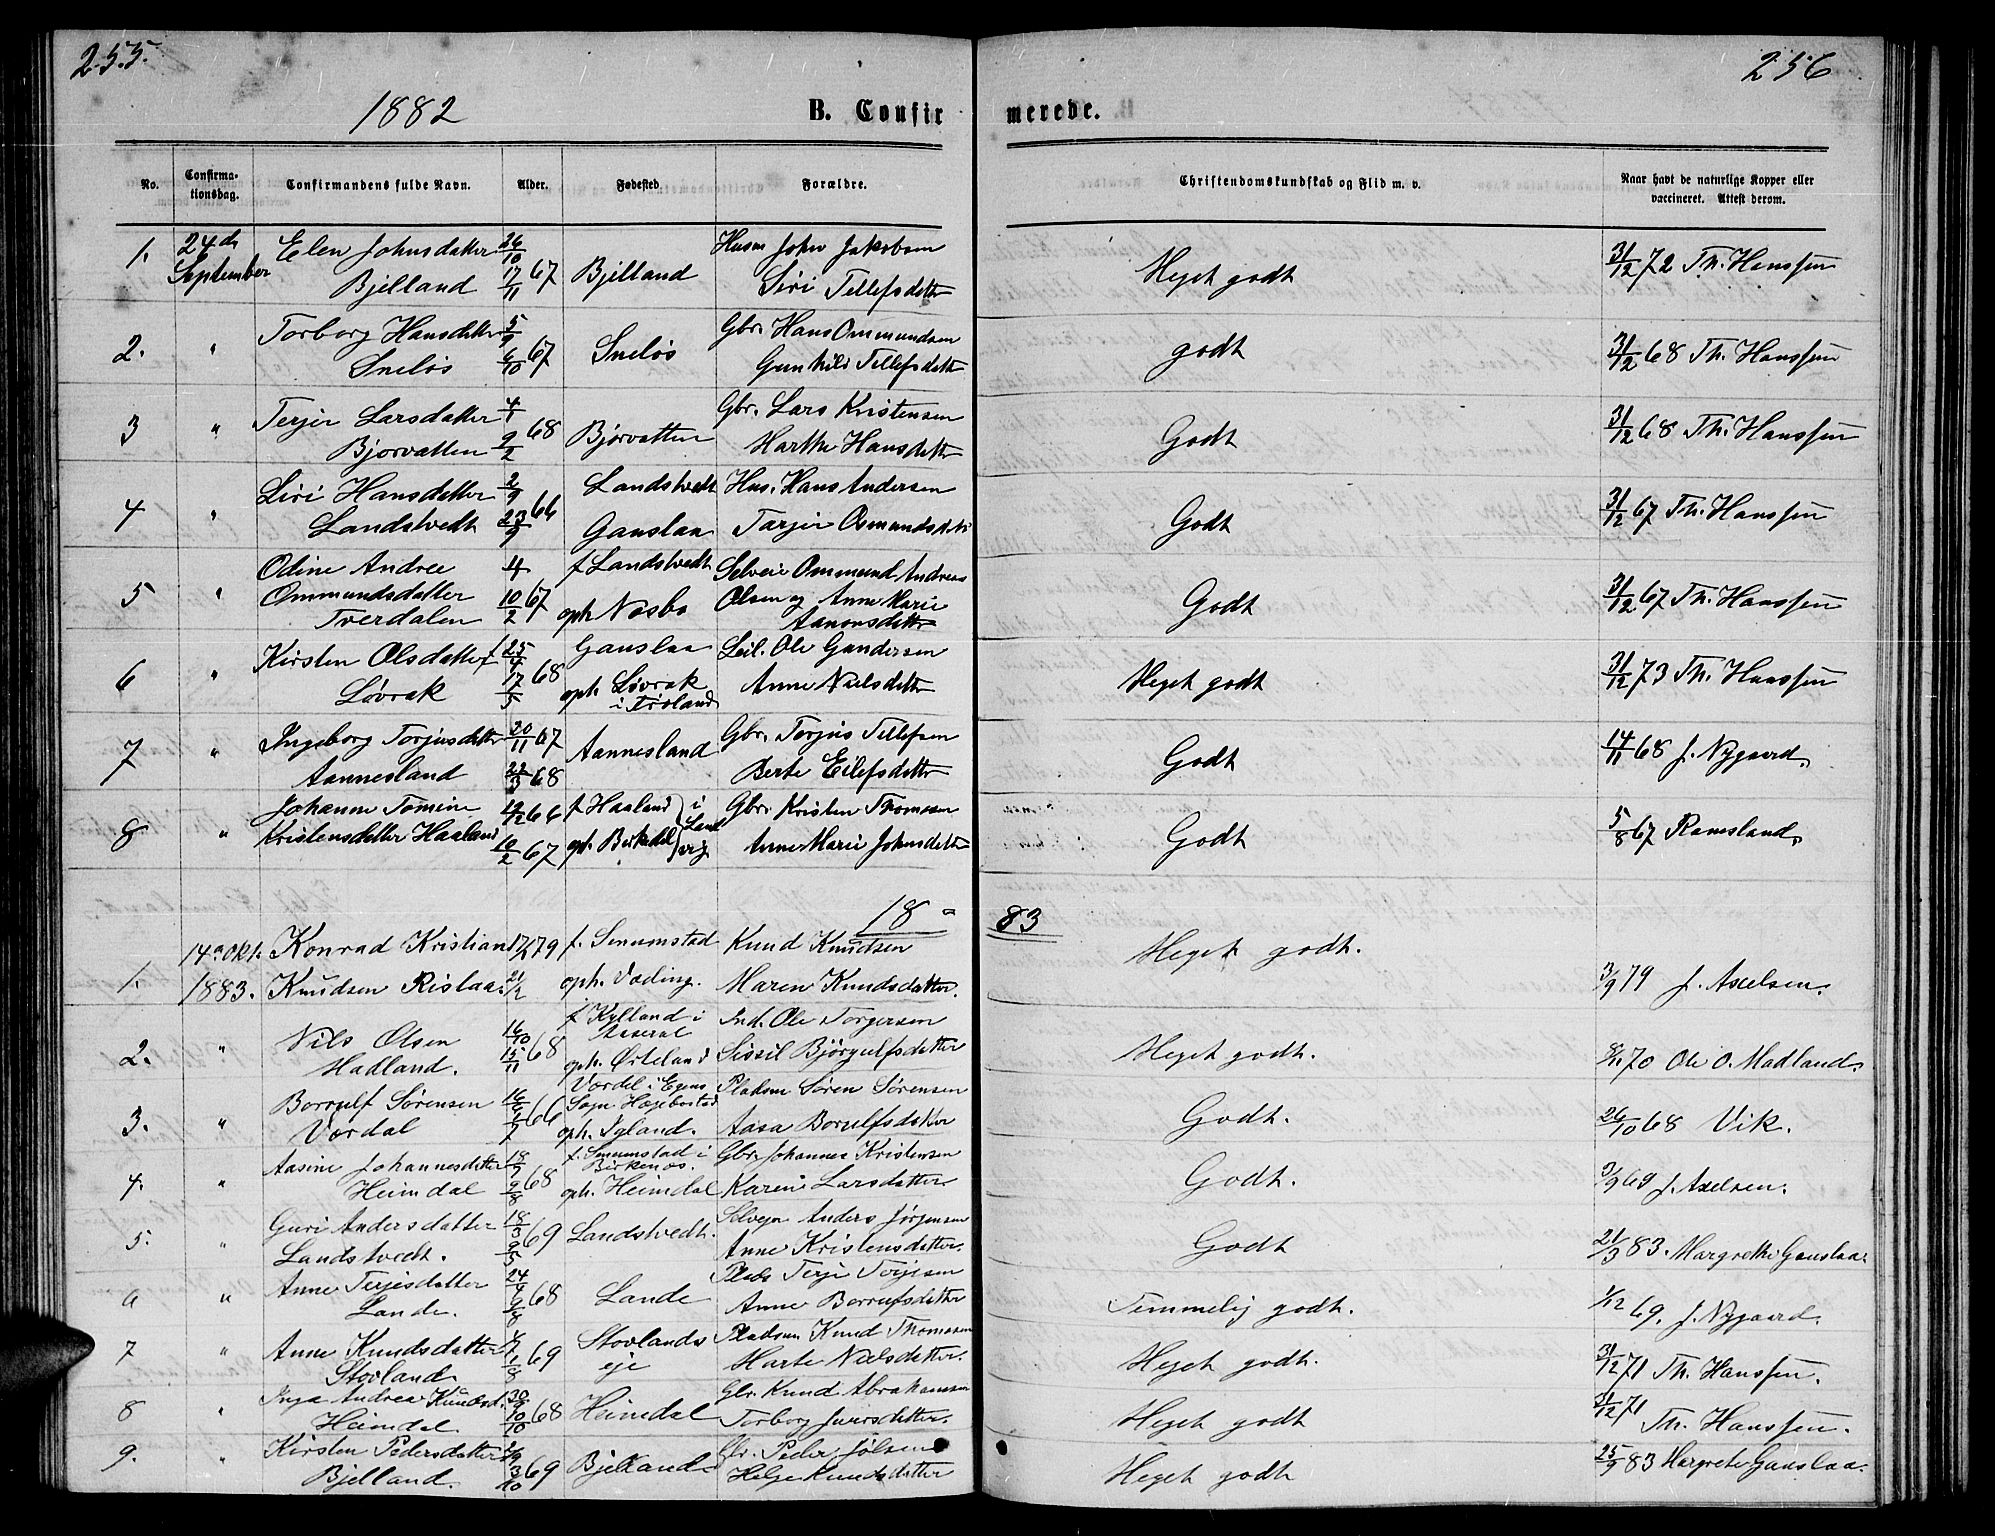 255.
256
1882
B. Confirmerede.
No. Confirmationsdag. Confirmandens fulde Navn. Alder. Fødested. Forældre. Christendomskundskab og Flid m. v. Naar havt de naturlige Kopper eller vaccineret. Attest derom.
1. 24de September Elen Johnsdatter Bjelland 26/10 17/11 67 Bjelland Husm John Jakobsen Siri Tellefsdatter Meget godt 31/12 72 Th. Hanssen
2. " Torborg Hansdatter Sneløs 5/9 6/10 67 Sneløs Gbr. Hans Ommundsen Gunhild Tellefsdatter godt 31/12 68 Th. Hanssen
3 " Terjer Larsdatter Bjorvatten 4/1 2/2 68 Bjorvatten Gbr. Lars Kristensen Marthe Hansdatter Godt 31/12 68 Th. Hanssen
4 " Siri Hansdatter Landstvedt 2/9 23/9 66 Landstvedt Gauslaa Hus. Hans Andersen Tarjer Osmundsdatter Godt 31/12 67 Th. Hanssen
5 " Odine Andree Ommundsdatter Tverdalen 10/2 67 f Landstvedt oph Næsbo Selveier Ommund Andreas Olsen og Anne Marie Aanonsdatter Godt 31/12 67 Th. Hanssen
6 " Kirsten Olsdatter Løvrak 25/4 17/5 68 f Gauslaa oph. Løvrak i Froland Leil. Ole Gundersen Anne Nilsdatter Meget godt 31/12 73 Th. Hanssen
7 " Ingeborg Torjusdatter Aannesland 20/11 67 22/3 68 Aannesland Gbr. Torjus Tellefsen Berte Eilefsdatter Godt 14/11 68 J. Nygaard.
8 " Johanne Tomine Kristensdatter Haaland 12/12 66 10/2 67 f Haaland oph. Birkedal i Landvig Gbr. Kristen Thomasen Anne Marie Johnsdatter Godt 5/8 67 Ramesland.
1883
1. 14de Okt. 1883. Konrad Kristian Knudsen Rislaa. 17/1 79 21/2 f. Senumstad oph. Væding. Knud Knudsen Maren Knudsdatter. Meget godt. 3/9 79 J. Axelsen.
2. " Nils Olsen Hadland. 16/10 15/11 68 f Kylland i Aaseral oph. Ørteland Ind. Ole Torgersen Sissil Bjørgulfsdatter Meget godt. 8/11 70 Ole O. Madland.
3. " Borrulf Sørensen Vordal 66 Vordel i Egens Sogn Hægebostad oph. Igland. Pladsm Søren Sørensen Aasa Borulfsdatter Godt. 26/10 68 Vik.
4. " Aasine Johannesdatter Heimdal 18/7 9/8 68 f. Senumstad i Birkenæs. oph. Heimdal Gbr. Johannes Kristensen Karen Larsdatter Godt. 3/9 69 J. Axelsen.
5. " Guri Andersdatter Landstvedt. 18/3 9/5 69 Landstvedt. Selvejer Anders Jørgensen Anne Kristensdatter. Godt 21/3 83. Margrethe Gauslaa.
6 " Anne Terjesdatter Lande. 24/7 9/8 68 Lande Plads Terje Terjesen Anne Borrulfsdatter Temmelig godt. 1/12 69. J. Nygaard.
7 " Anne Knudsdatter Stovland. 4/7 1/8 69 Stovlands eje Pladsm Knud Thomasen Marte Nilsdatter. Meget godt. 31/12 71 Th. Hanssen.
8 " Inga Andrea Knudsd. Heimdal 30/9 10/10 68 Heimdal Gbr. Knud Abrahamsen Torborg Jversdatter. Meget godt 31/12 71 Th. Hanssen.
9. " Kirsten Pedersdatter Bjelland. 3/10 69 Bjelland Gbr. Peder Jølsen Helje Knudsdatter Meget godt 25/9 83 Margrete Gauslaa.